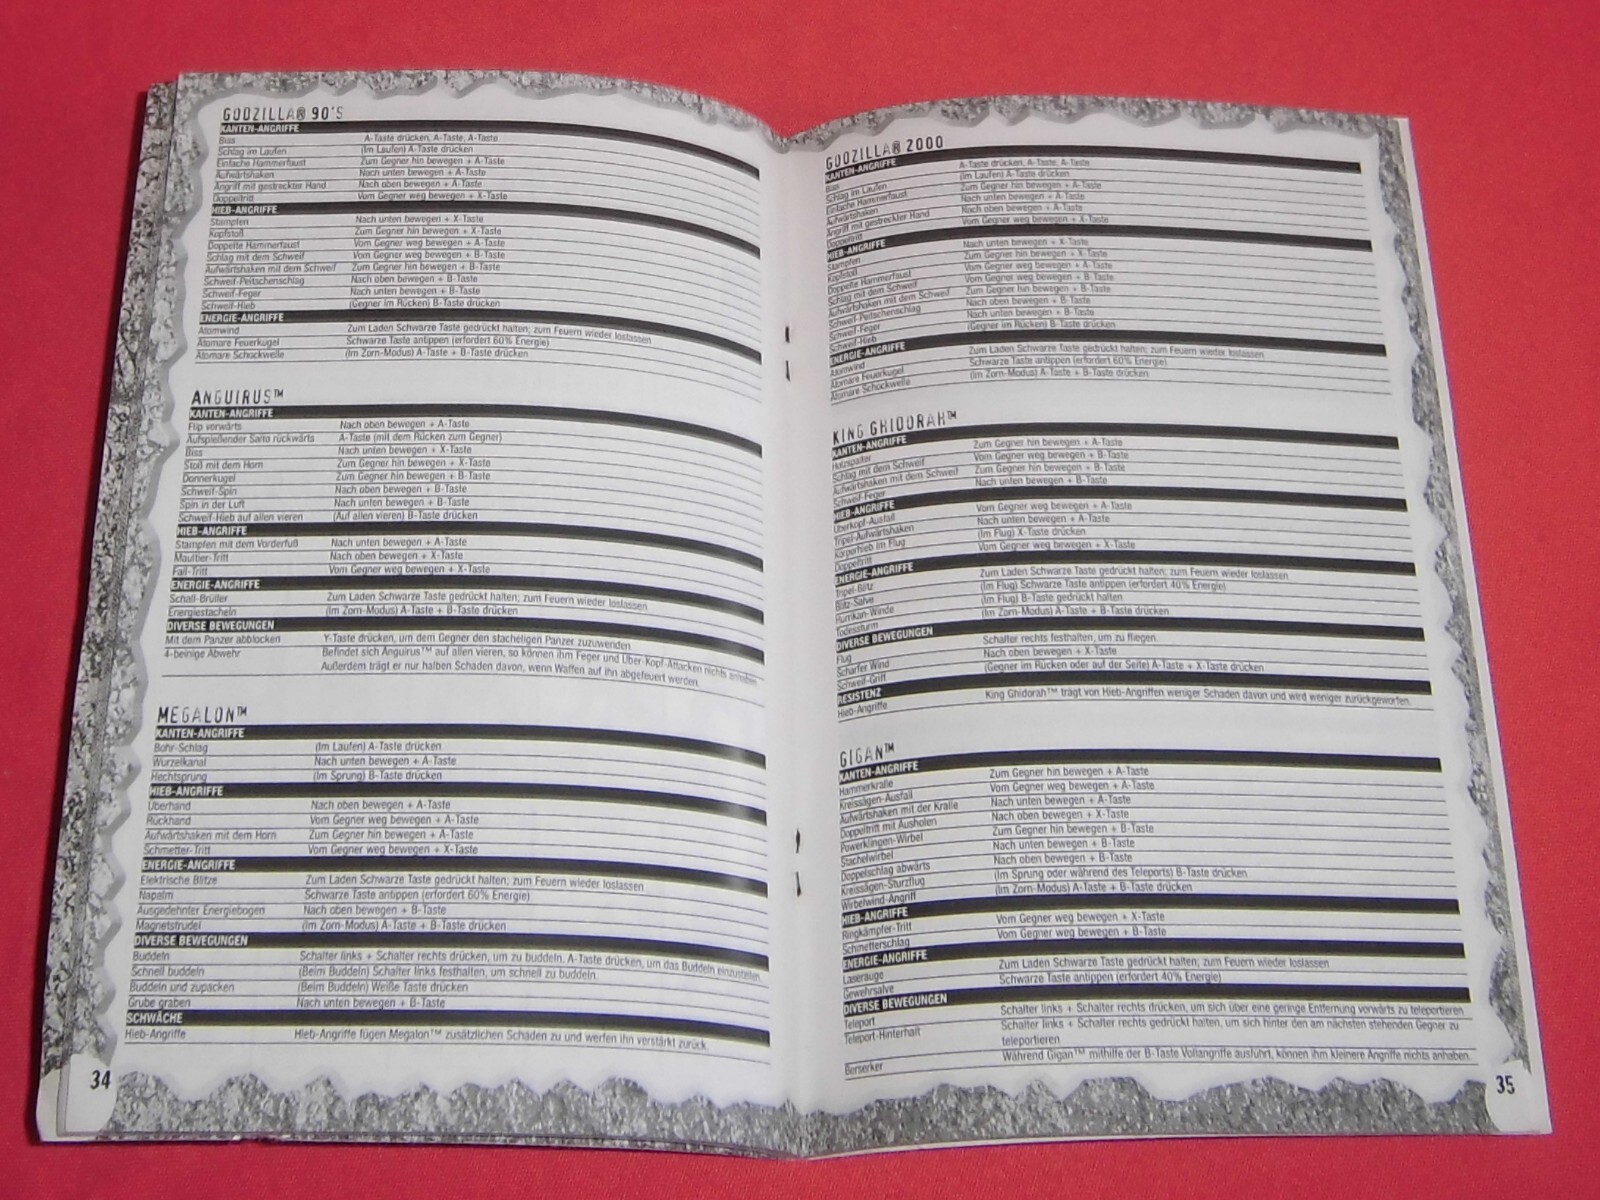 GODZILLA® 90'S
KANTEN-ANGRIFFE
Biss A-Taste drücken, A-Taste, A-Taste
Schlag im Laufen (Im Laufen) A-Taste drücken
Einfache Hammerfaust Zum Gegner hin bewegen + A-Taste
Aufwärtshaken Nach unten bewegen + A-Taste
Angriff mit gestreckter Hand Nach oben bewegen + A-Taste
Doppeltritt Vom Gegner weg bewegen + X-Taste
HIEB-ANGRIFFE
Stampfen Nach unten bewegen + X-Taste
Kopfstoß Zum Gegner hin bewegen + X-Taste
Doppelte Hammerfaust Vom Gegner weg bewegen + A-Taste
Schlag mit dem Schweif Vom Gegner weg bewegen + B-Taste
Aufwärtshaken mit dem Schweif Zum Gegner hin bewegen + B-Taste
Schweif-Peitschenschlag Nach oben bewegen + B-Taste
Schweif-Feger Nach unten bewegen + B-Taste
Schweif-Hieb (Gegner im Rücken) B-Taste drücken
ENERGIE-ANGRIFFE
Atomwind Zum Laden Schwarze Taste gedrückt halten; zum Feuern wieder loslassen
Atomare Feuerkugel Schwarze Taste antippen (erfordert 60% Energie)
Atomare Schockwelle (Im Zorn-Modus) A-Taste + B-Taste drücken
ANGUIRUS™
KANTEN-ANGRIFFE
Flip vorwärts Nach oben bewegen + A-Taste
Aufspießender Salto rückwärts A-Taste (mit dem Rücken zum Gegner)
Biss Nach unten bewegen + X-Taste
Stoß mit dem Horn Zum Gegner hin bewegen + X-Taste
Donnerkugel Zum Gegner hin bewegen + B-Taste
Schweif-Spin Nach oben bewegen + B-Taste
Spin in der Luft Nach unten bewegen + B-Taste
Schweif-Hieb auf allen vieren (Auf allen vieren) B-Taste drücken
HIEB-ANGRIFFE
Stampfen mit dem Vorderfuß Nach unten bewegen + A-Taste
Maultier-Tritt Nach oben bewegen + X-Taste
Fall-Tritt Vom Gegner weg bewegen + X-Taste
ENERGIE-ANGRIFFE
Schall-Brüller Zum Laden Schwarze Taste gedrückt halten; zum Feuern wieder loslassen
Energiestacheln (Im Zorn-Modus) A-Taste + B-Taste drücken
DIVERSE BEWEGUNGEN
Mit dem Panzer abblocken Y-Taste drücken, um dem Gegner den stacheligen Panzer zuzuwenden
4-beinige Abwehr Befindet sich Anguirus™ auf allen vieren, so können ihm Feger und Über-Kopf-Attacken nichts anhaben.
Außerdem trägt er nur halben Schaden davon, wenn Waffen auf ihn abgefeuert werden.
MEGALON™
KANTEN-ANGRIFFE
Bohr-Schlag (Im Laufen) A-Taste drücken
Wurzelkanal Nach unten bewegen + A-Taste
Hechtsprung (Im Sprung) B-Taste drücken
HIEB-ANGRIFFE
Überhand Nach oben bewegen + A-Taste
Rückhand Vom Gegner weg bewegen + A-Taste
Aufwärtshaken mit dem Horn Zum Gegner hin bewegen + A-Taste
Schmetter-Tritt Vom Gegner weg bewegen + X-Taste
ENERGIE-ANGRIFFE
Elektrische Blitze Zum Laden Schwarze Taste gedrückt halten; zum Feuern wieder loslassen
Napalm Schwarze Taste antippen (erfordert 60% Energie)
Ausgedehnter Energiebogen Nach oben bewegen + B-Taste
Magnetstrudel (Im Zorn-Modus) A-Taste + B-Taste drücken
DIVERSE BEWEGUNGEN
Buddeln Schalter links + Schalter rechts drücken, um zu buddeln. A-Taste drücken, um das Buddeln einzustellen.
Schnell buddeln (Beim Buddeln) Schalter links festhalten, um schnell zu buddeln.
Buddeln und zupacken (Beim Buddeln) Weiße Taste drücken
Grube graben Nach unten bewegen + B-Taste
SCHWÄCHE
Hieb-Angriffe Hieb-Angriffe fügen Megalon™ zusätzlichen Schaden zu und werfen ihn verstärkt zurück.
34
GODZILLA® 2000
KANTEN-ANGRIFFE
Biss A-Taste drücken, A-Taste, A-Taste
Schlag im Laufen (Im Laufen) A-Taste drücken
Einfache Hammerfaust Zum Gegner hin bewegen + A-Taste
Aufwärtshaken Nach unten bewegen + A-Taste
Angriff mit gestreckter Hand Nach oben bewegen + A-Taste
Doppeltritt Vom Gegner weg bewegen + X-Taste
HIEB-ANGRIFFE
Stampfen Nach unten bewegen + X-Taste
Kopfstoß Zum Gegner hin bewegen + X-Taste
Doppelte Hammerfaust Vom Gegner weg bewegen + A-Taste
Schlag mit dem Schweif Vom Gegner weg bewegen + B-Taste
Aufwärtshaken mit dem Schweif Zum Gegner hin bewegen + B-Taste
Schweif-Peitschenschlag Nach oben bewegen + B-Taste
Schweif-Feger Nach unten bewegen + B-Taste
Schweif-Hieb (Gegner im Rücken) B-Taste drücken
ENERGIE-ANGRIFFE
Atomwind Zum Laden Schwarze Taste gedrückt halten; zum Feuern wieder loslassen
Atomare Feuerkugel Schwarze Taste antippen (erfordert 60% Energie)
Atomare Schockwelle (Im Zorn-Modus) A-Taste + B-Taste drücken
KING GHIDORAH™
KANTEN-ANGRIFFE
Holzspalter Zum Gegner hin bewegen + A-Taste
Schlag mit dem Schweif Vom Gegner weg bewegen + B-Taste
Aufwärtshaken mit dem Schweif Zum Gegner hin bewegen + B-Taste
Schweif-Feger Nach unten bewegen + B-Taste
HIEB-ANGRIFFE
Überkopf-Ausfall Vom Gegner weg bewegen + A-Taste
Tripel-Aufwärtshaken Nach unten bewegen + A-Taste
Körperhieb im Flug (Im Flug) X-Taste drücken
Doppeltritt Vom Gegner weg bewegen + X-Taste
ENERGIE-ANGRIFFE
Tripel-Blitz Zum Laden Schwarze Taste gedrückt halten; zum Feuern wieder loslassen
Blitz-Salve (Im Flug) Schwarze Taste antippen (erfordert 40% Energie)
Hurrikan-Winde (Im Flug) B-Taste gedrückt halten
Todessturm (Im Zorn-Modus) A-Taste + B-Taste drücken
DIVERSE BEWEGUNGEN
Flug Schalter rechts festhalten, um zu fliegen.
Scharfer Wind Nach oben bewegen + X-Taste
Schweif-Griff (Gegner im Rücken oder auf der Seite) A-Taste + X-Taste drücken
RESISTENZ
Hieb-Angriffe King Ghidorah™ trägt von Hieb-Angriffen weniger Schaden davon und wird weniger zurückgeworfen.
GIGAN™
KANTEN-ANGRIFFE
Hammerkralle Zum Gegner hin bewegen + A-Taste
Kreissägen-Ausfall Vom Gegner weg bewegen + A-Taste
Aufwärtshaken mit der Kralle Nach unten bewegen + A-Taste
Doppeltritt mit Ausholen Nach oben bewegen + X-Taste
Powerklingen-Wirbel Zum Gegner hin bewegen + B-Taste
Stachelwirbel Nach unten bewegen + B-Taste
Doppelschlag abwärts Nach oben bewegen + B-Taste
Kreissägen-Sturzflug (Im Sprung oder während des Teleports) B-Taste drücken
Wirbelwind-Angriff (Im Zorn-Modus) A-Taste + B-Taste drücken
HIEB-ANGRIFFE
Ringkämpfer-Tritt Vom Gegner weg bewegen + X-Taste
Schmetterschlag Vom Gegner weg bewegen + B-Taste
ENERGIE-ANGRIFFE
Laserauge Zum Laden Schwarze Taste gedrückt halten; zum Feuern wieder loslassen
Gewehrsalve Schwarze Taste antippen (erfordert 40% Energie)
DIVERSE BEWEGUNGEN
Teleport Schalter links + Schalter rechts drücken, um sich über eine geringe Entfernung vorwärts zu teleportieren
Teleport-Hinterhalt Schalter links + Schalter rechts gedrückt halten, um sich hinter den am nächsten stehenden Gegner zu
teleportieren
Berserker Während Gigan™ mithilfe der B-Taste Vollangriffe ausführt, können ihm kleinere Angriffe nichts anhaben.
35